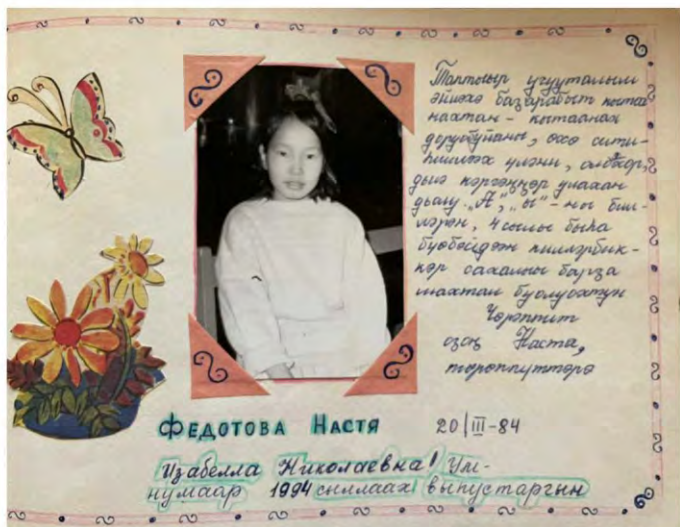 Таптыыр учууталым
эйиэхэ баҕарабыт кытаа
нахтан - кытаанах
доруобуйаны, өссө сити-
һиилээх үлэни, олоххор,
дьиэ кэргэҥҥэр улахан
дьолу. „А", „ы"-ны бил-
лэрэн, 4 сылы быһа
бүөбэйдээн киллэрбик-
кэр сахалыы барҕа
махтал буолуохтун
Үөрэппит
оҕоҥ Наста,
төрөппүттэрэ
Федотова Настя 20/III-84
Изабелла Николаевна! Ум-
нумаар 1994 сыллаах выпустаргын